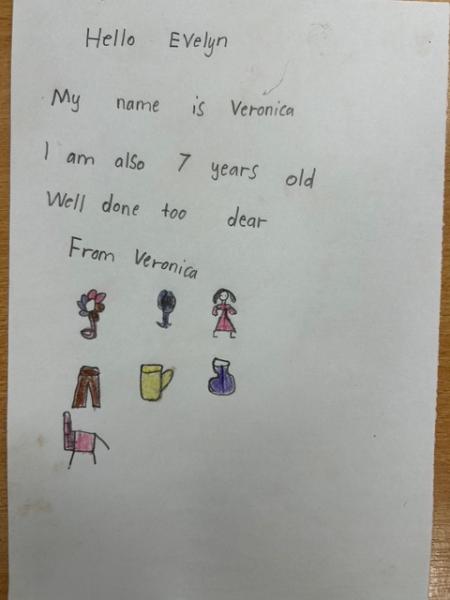 Hello Evelyn
My name is Veronica
I am also 7 years old
Well done too dear
From Veronica